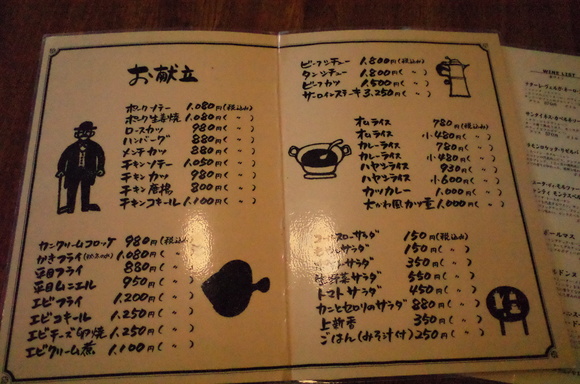 お献立
ポークソテー 1.080円(税込み)
ポーク生姜焼 1.080円( 〃 )
ロースカツ 980円( 〃 )
ハンバーグ 880円( 〃 )
メンチカツ 880円( 〃 )
チキンソテー 1.050円( 〃 )
チキンカツ 980円( 〃 )
チキン唐揚 800円( 〃 )
チキンコキール 1.100円( 〃 )
カニクリームコロッケ 980円(税込み)
かきフライ 1.080円( 〃 )
平目フライ 880円( 〃 )
平目ムニエル 950円( 〃 )
エビフライ 1.200円( 〃 )
エビコキール 1.250円( 〃 )
エビチーズ卵焼 1.250円( 〃 )
エビクリーム煮 1.100円( 〃 )
ビーフシチュー 1.800円(税込み)
タンシチュー 1.800円( 〃 )
ビーフカツ 1.500円( 〃 )
サーロインステーキ 3.250円( 〃 )
オムライス 780円(税込み)
オムライス 小.480円( 〃 )
カレーライス 780円( 〃 )
カレーライス 小.480円( 〃 )
ハヤシライス 930円( 〃 )
ハヤシライス 小.600円( 〃 )
カツカレー 1.000円( 〃 )
大かわ風カツ重 1.000円( 〃 )
コールスローサラダ 150円(税込み)
サラダ 150円( 〃 )
サラダ 350円( 〃 )
生野菜サラダ 550円( 〃 )
トマトサラダ 450円( 〃 )
カニとセロリのサラダ 880円( 〃 )
上新香 350円( 〃 )
ごはん(みそ汁付) 250円( 〃 )
WINE LIST